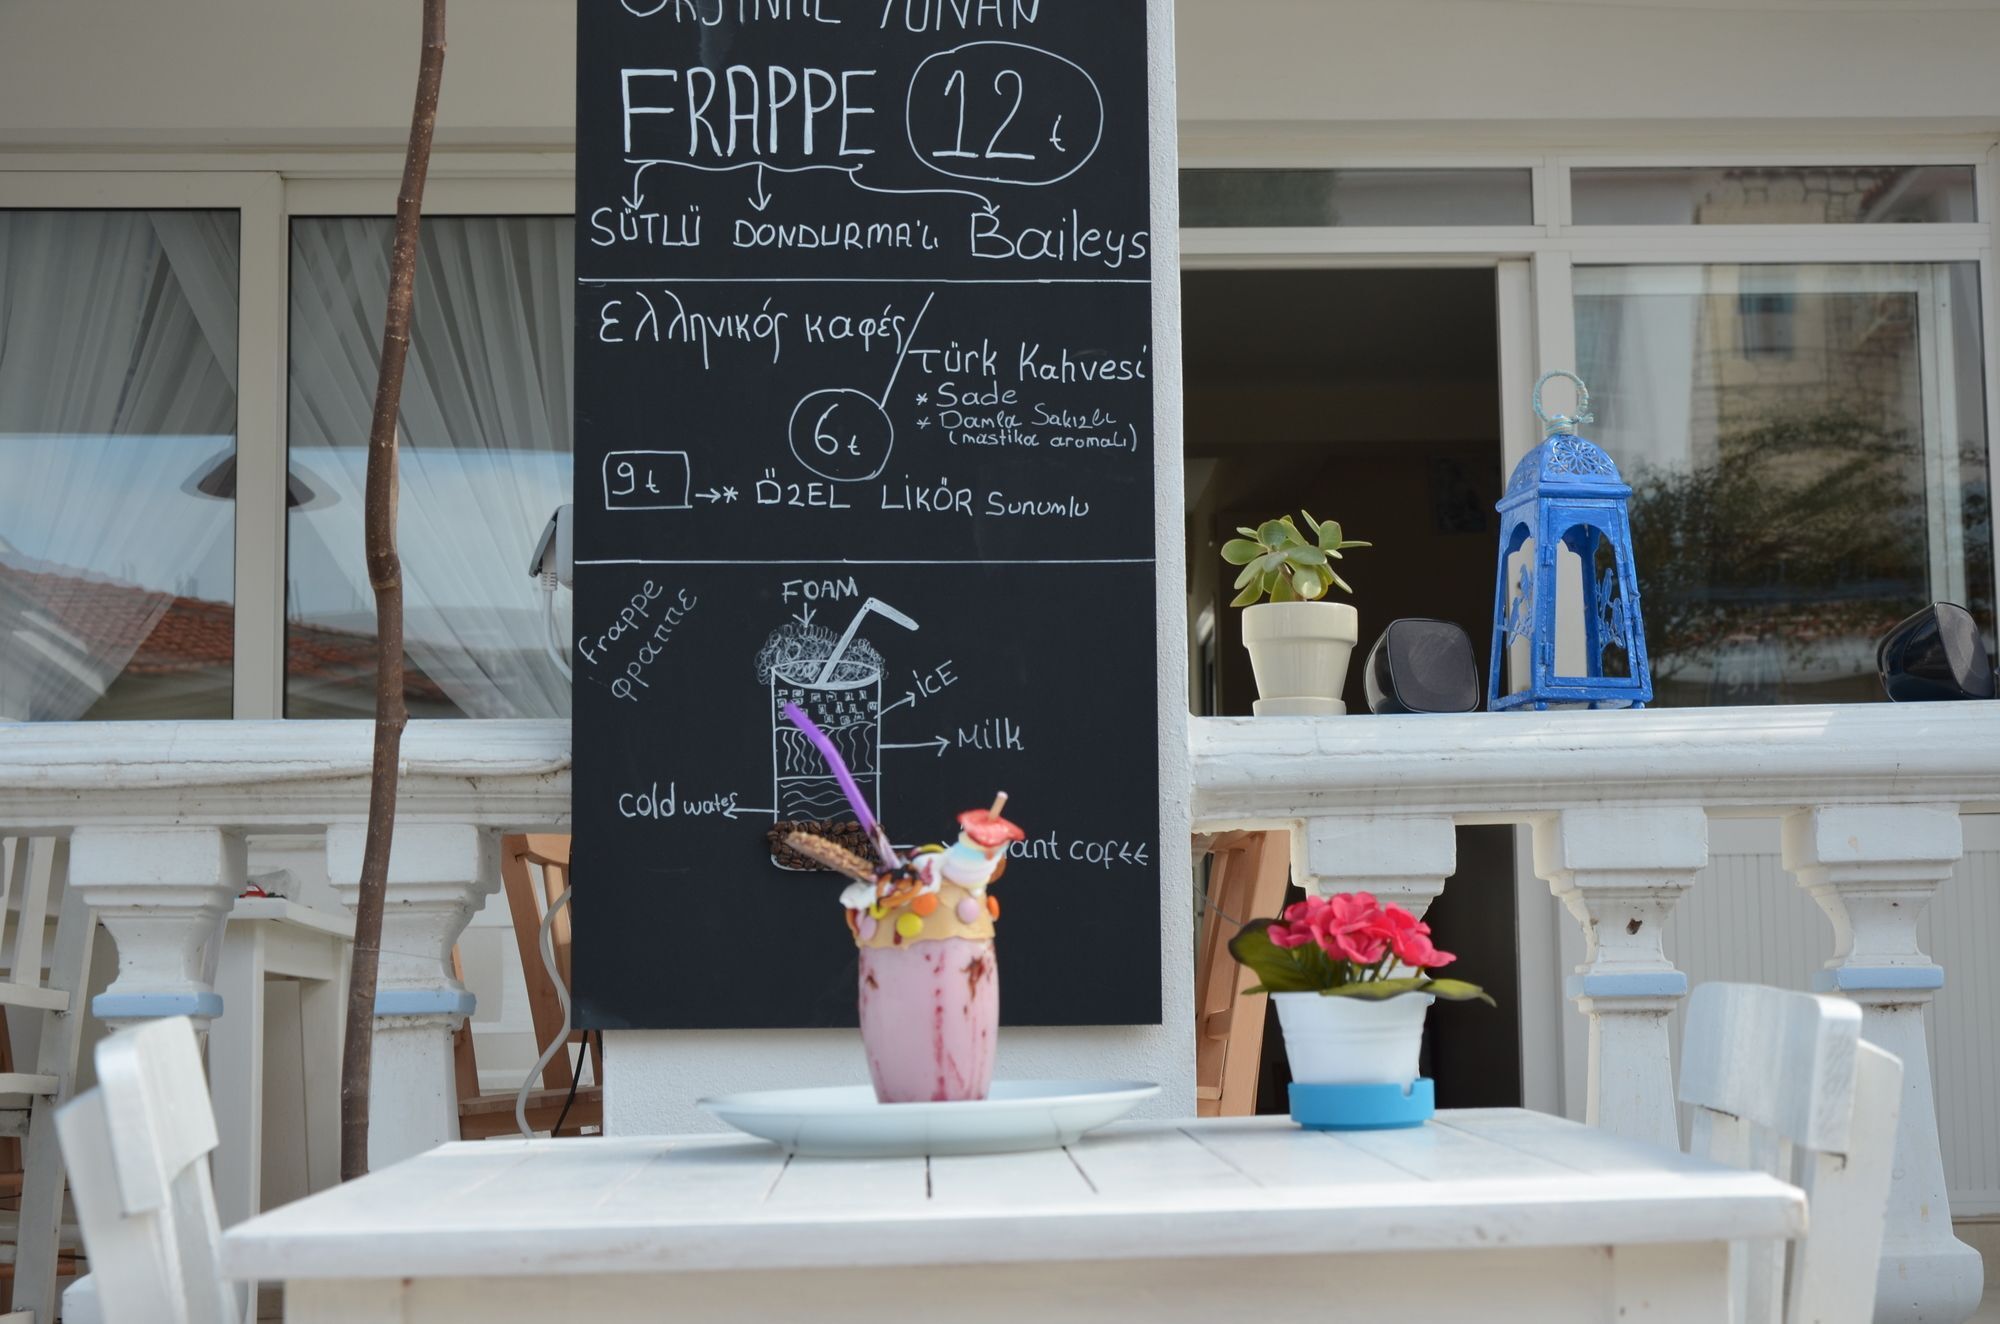 ORJİNAL YUNAN
FRAPPE 12 ₺
SÜTLÜ DONDURMA'LI Baileys
ελληνικός καφές/
Türk Kahvesi
* Sade
* Damla Sakızlı
(mastika aromalı)
6 ₺
9 ₺ →* ÖZEL LİKÖR Sunumlu
frappe
φραππε
FOAM
İCE
Milk
cold water
cofee